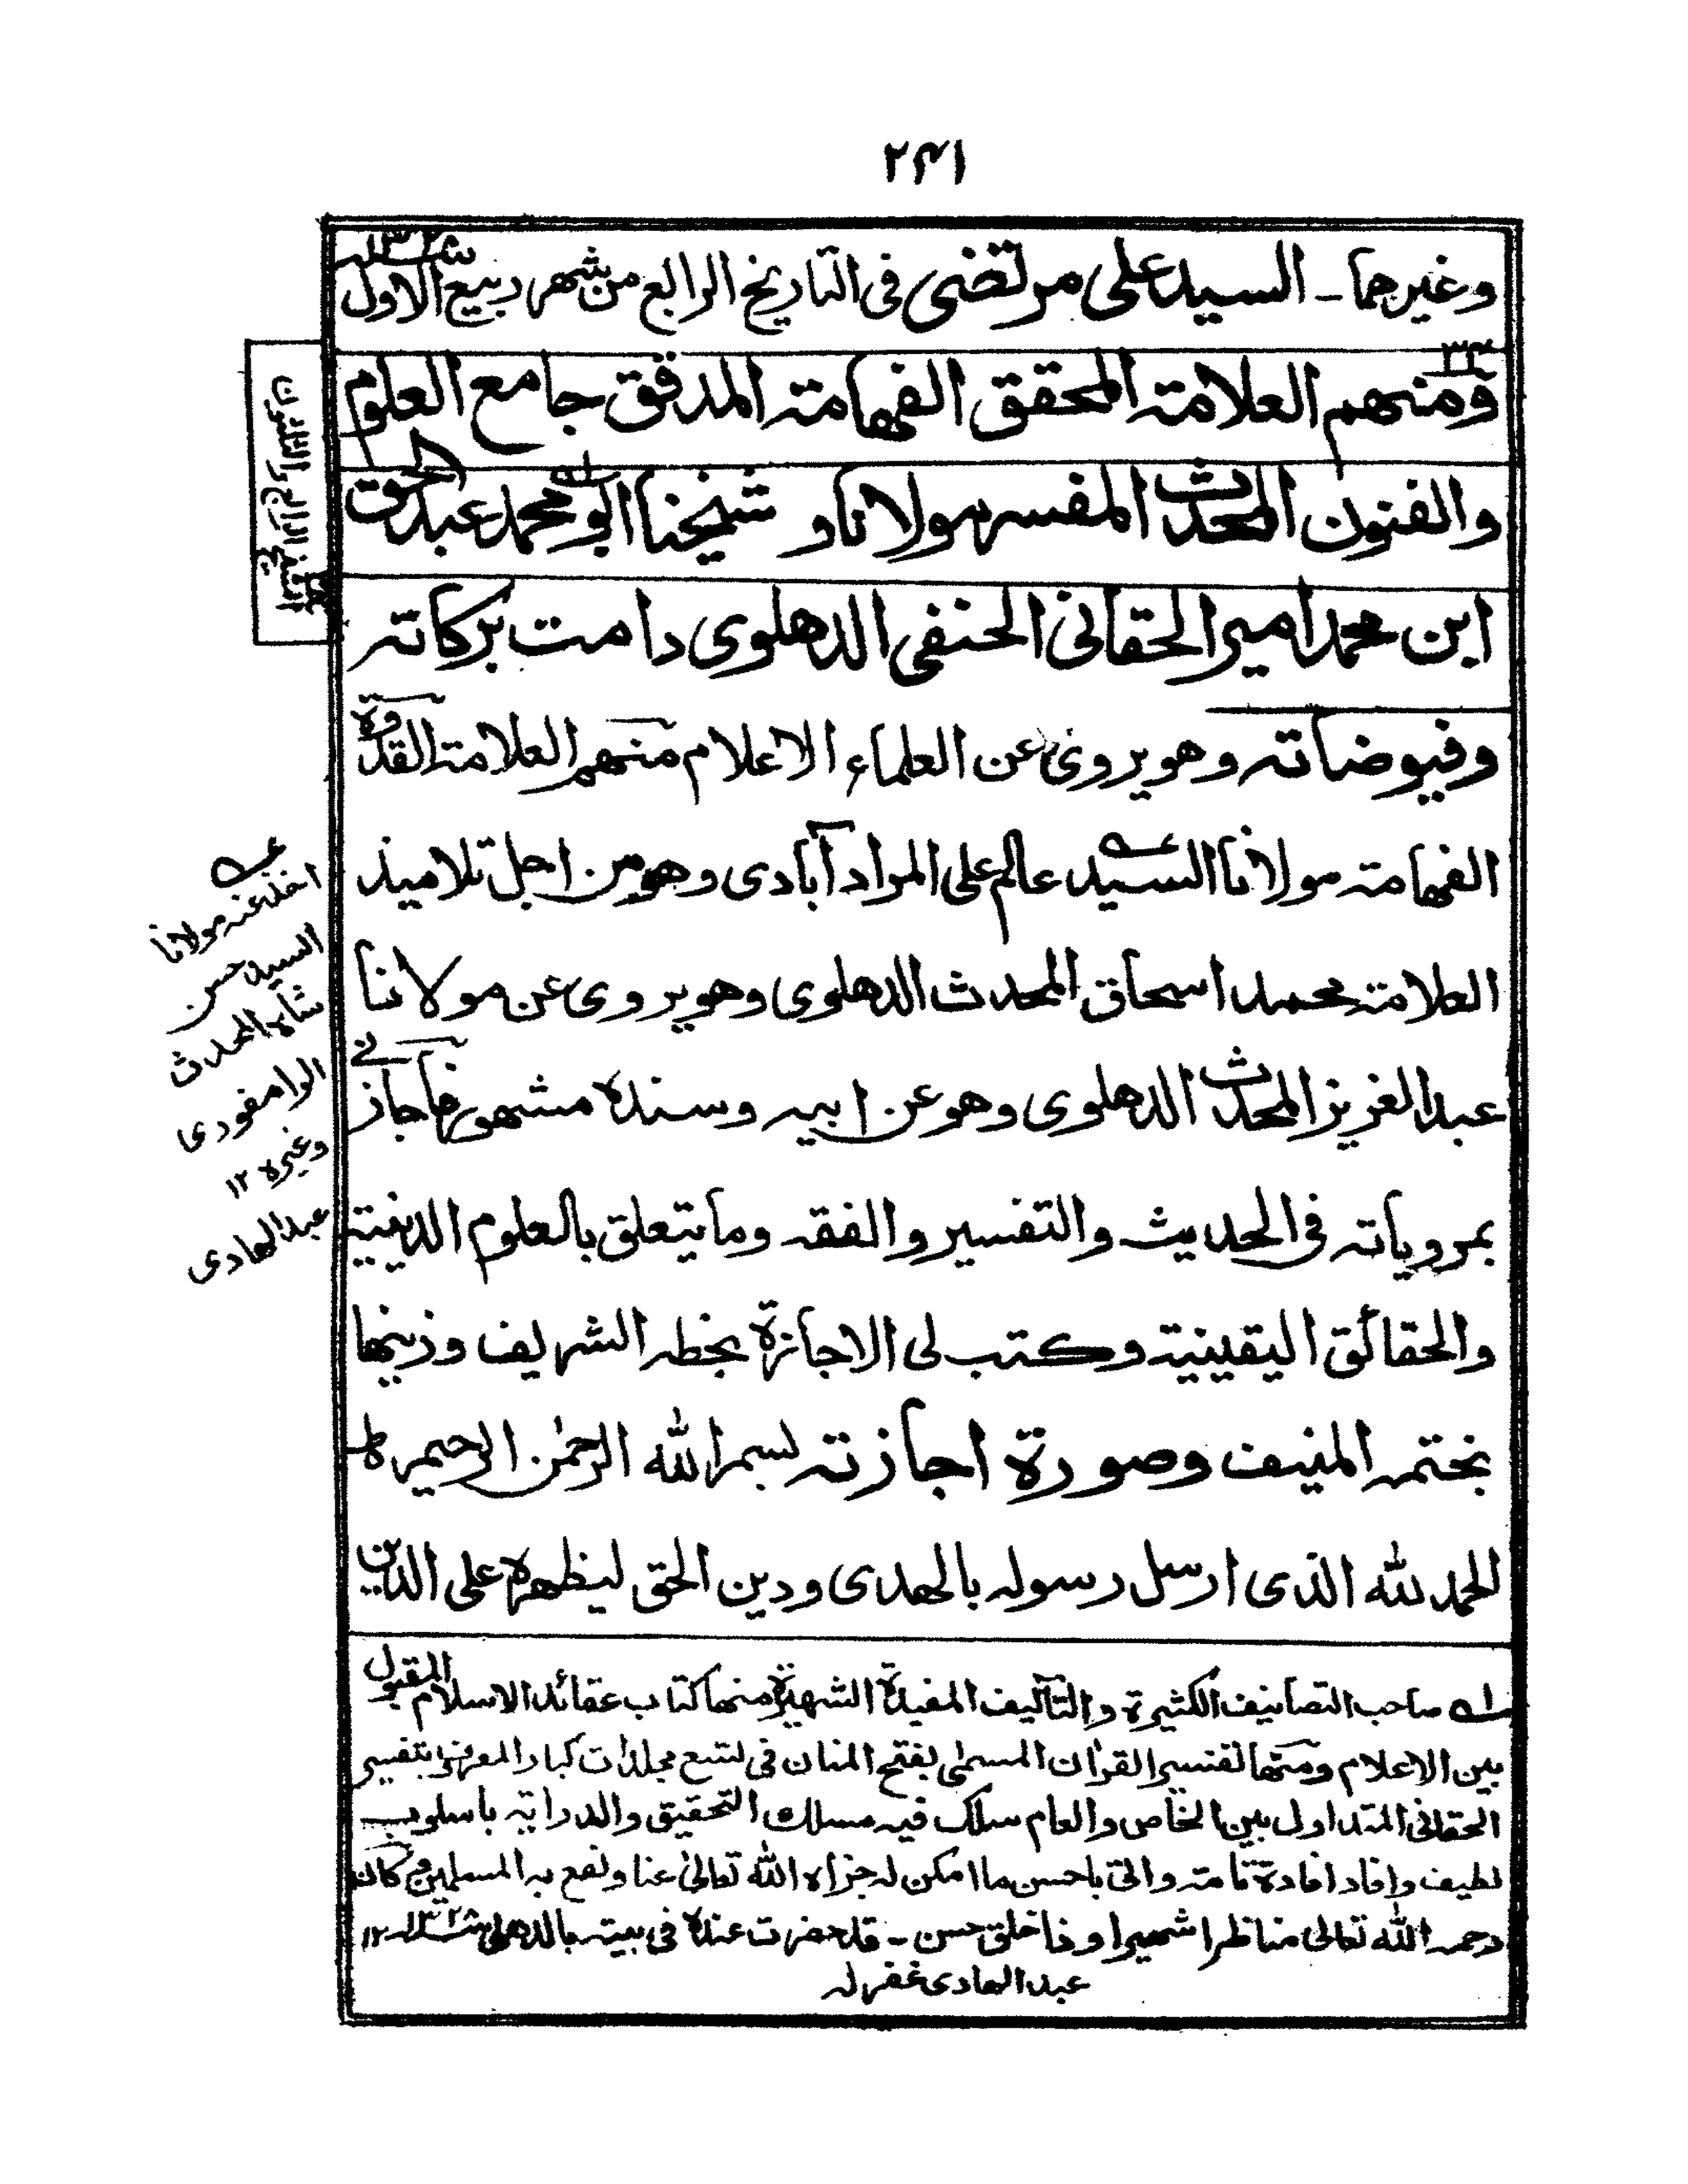 ٢٤١
وغيرهما ـ السيد على مرتضى فى التاريخ الرابع من شهر ربيع الاول ١٣٢٨
٣٤
ومنهم العلامة المحقق الفهامة المدقق جامع العلوم
والفنون المحدث المفسر مولانا و شيخنا ابو محمد عبد الحق
ابن محمد امير الحقانى الحنفى الدهلوى دامت بركاته
وفيوضاته وهو يروى عن العلماء الاعلام منهم العلامة القدوة
الفهامة مولانا السيد عالم على المرادآبادى وهو من اجل تلاميذ
العلامة محمد اسحاق المحدث الدهلوى وهو يروى عن مولانا
عبد العزيز المحدث الدهلوى وهو عن ابيه وسنده مشهور فاجازنى
بمروياته فى الحديث والتفسير والفقه وما يتعلق بالعلوم الدينية
والحقائق اليقينية وكتب لى الاجازة بخطه الشريف وزينها
بختمه المنيف وصورة اجازته بسم الله الرحمن الرحيم ط
الحمد لله الذى ارسل رسوله بالهدى ودين الحق ليظهره على الدين
الشيخ الرابع والثلثون
عه
اخذ عنه مولانا
السيد حسن
شاه المحدث
الرامفورى
وغيره ١٢
عبد الهادى
له صاحب التصانيف الكثيرة والتآليف المفيدة الشهيرة منها كتاب عقائد الاسلام المقبول
بين الاعلام ومنها تفسير القرآن المسمى بفتح المنان فى تسع مجلدات كبار المعروف بتفسير
الحقانى المتداول بين الخاص والعام سلك فيه مسلك التحقيق والدراية باسلوب
لطيف وافاد افادة تامة واتى باحسن ما امكن له جزاه الله تعالى عنا ونفع به المسلمين وكان
رحمه الله تعالى مناظرا شهيرا وذا خلق حسن ـ قد حضرت عنده فى بيته بالدهلى ١٣٢٨ ١٢
عبد الهادى غفر له